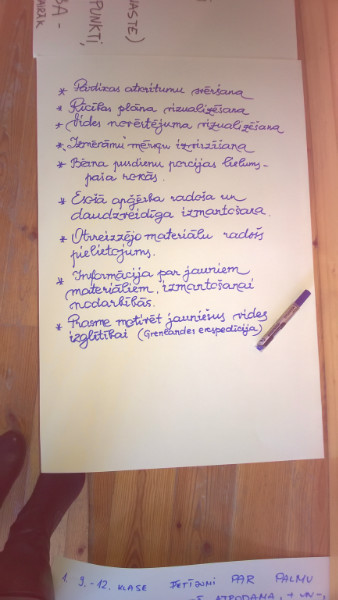 NASTE)
PUNKTI,
BA -
* Pārtikas atkritumu svēršana
* Rīcības plāna vizualizēšana
* Vides novērtējuma vizualizēšana
* Izmērāmu mērķu izvirzīšana
* Bērna pusdienu porcijas lielums -
paša rokās.
* Esošā apģērba radoša un
daudzveidīga izmantošana.
* Otrreizējo materiālu radošs
pielietojums.
* Informācija par jauniem
materiāliem, izmantošanai
nodarbībās.
* Prasme motivēt jauniešus vides
izglītībai (Grenlandes ekspedīcija)
1. 9.-12. KLASE IETĪŅNI PAR PALMU
ATPODANA, + UN -,